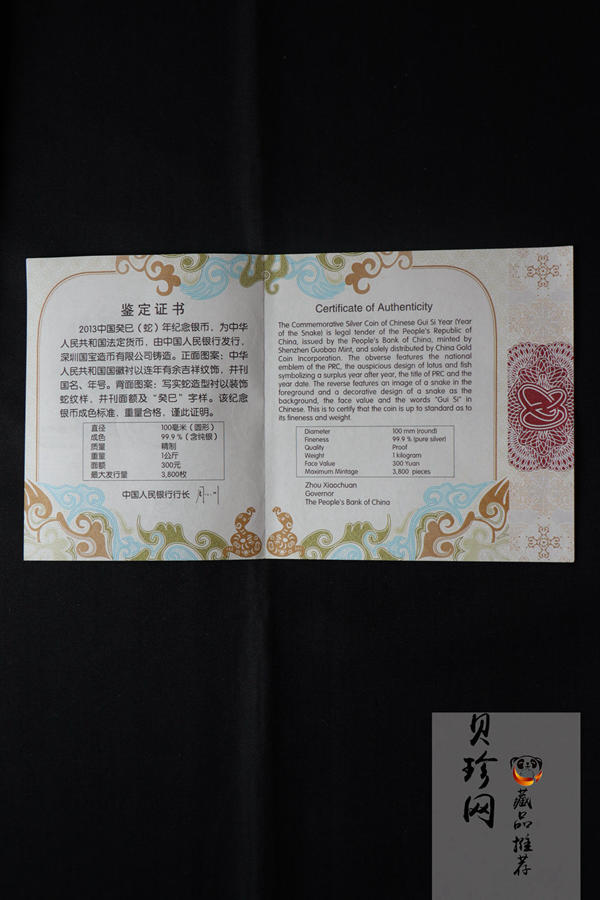 鉴定证书
2013中国癸巳（蛇）年纪念银币，为中华
人民共和国法定货币，由中国人民银行发行，
深圳国宝造币有限公司铸造。正面图案：中华
人民共和国国徽衬以连年有余吉祥纹饰，并刊
国名、年号。背面图案：写实蛇造型衬以装饰
蛇纹样，并刊面额及“癸巳”字样。该纪念
银币成色标准、重量合格，谨此证明。
直径 100毫米（圆形）
成色 99.9 %（含纯银）
质量 精制
重量 1公斤
面额 300元
最大发行量 3,800枚
中国人民银行行长
Certificate of Authenticity
The Commemorative Silver Coin of Chinese Gui Si Year (Year
of the Snake) is legal tender of the People's Republic of
China, issued by the People's Bank of China, minted by
Shenzhen Guobao Mint, and solely distributed by China Gold
Coin Incorporation. The obverse features the national
emblem of the PRC, the auspicious design of lotus and fish
symbolizing a surplus year after year, the title of PRC and the
year date. The reverse features an image of a snake in the
foreground and a decorative design of a snake as the
background, the face value and the words "Gui Si" in
Chinese. This is to certify that the coin is up to standard as to
its fineness and weight.
Diameter 100 mm (round)
Fineness 99.9 % (pure silver)
Quality Proof
Weight 1 kilogram
Face Value 300 Yuan
Maximum Mintage 3,800 pieces
Zhou Xiaochuan
Governor
The People's Bank of China
贝珍网
藏品推荐